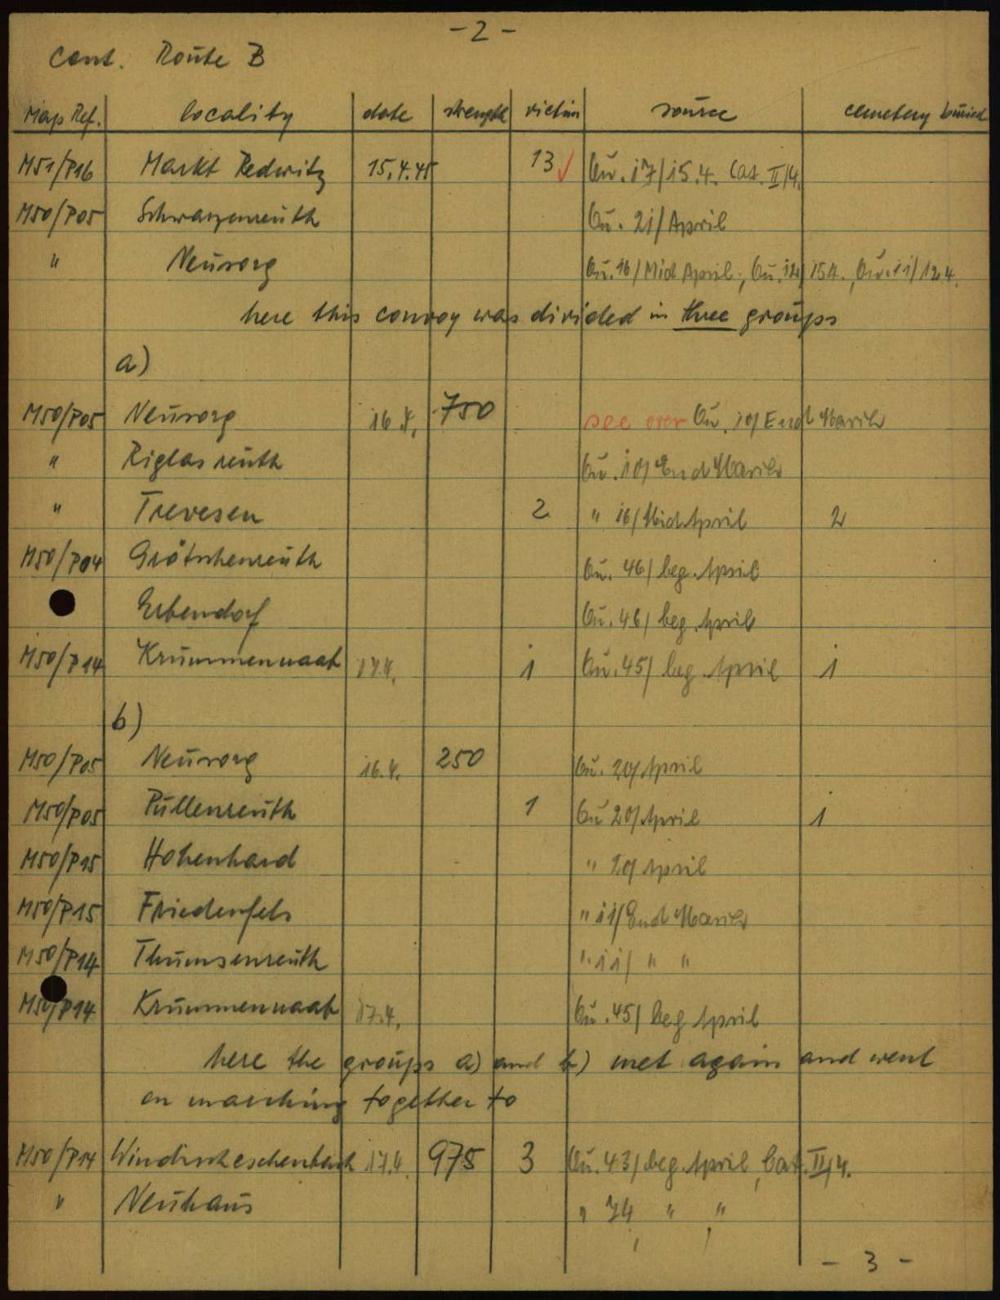 - 2 -
cont. Route B
Map Ref. locality date strength victim source cemetery buried
M51/P16 Markt Redwitz 15.4.45 13 ✓ Qu. 17/15.4. Cat. II/4.
M50/P05 Schwarzenreuth Qu. 21/April
" Neusorg Qu. 16/Mid April; Qu. 12/15.4., Qu. 11/12.4.
here this convoy was divided in three groups
a)
M50/P05 Neusorg 16.4. 750 see over Qu. 10/End March
" Riglasreuth Qu. 10/End March
" Trevesen 2 " 16/Mid April 2
M50/P04 Grötschenreuth Qu. 46/ beg. April
Erbendorf Qu. 46/ beg. April
M50/P14 Krummennaab 17.4. 1 Qu. 45/ beg. April 1
b)
M50/P05 Neusorg 16.4. 250 Qu. 20/April
M50/P05 Pullenreuth 1 Qu 20/April 1
M50/P15 Hohenhard " 20/April
M50/P15 Friedenfels " 11/End March
M50/P14 Thumsenreuth " 11/ " "
M50/P14 Krummennaab 17.4. Qu. 45/ beg April
here the groups a) and b) met again and went
on marching together to
M50/P14 Windischeschenbach 17.4. 975 3 Qu. 43/ beg. April, Cat. II/4.
" Neuhaus " 74 " "
- 3 -